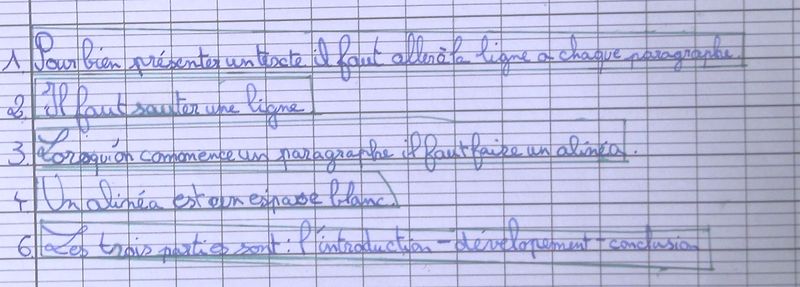 1 Pour bien présenter un texte il faut aller à la ligne a chaque paragraphe.
2. Il faut sauter une ligne
3. Lorsqu'on commence un paragraphe il faut faire un alinéa.
4. Un alinéa est un espace blanc.
6. Les trois parties sont : l'introduction - dévelopement - conclusion